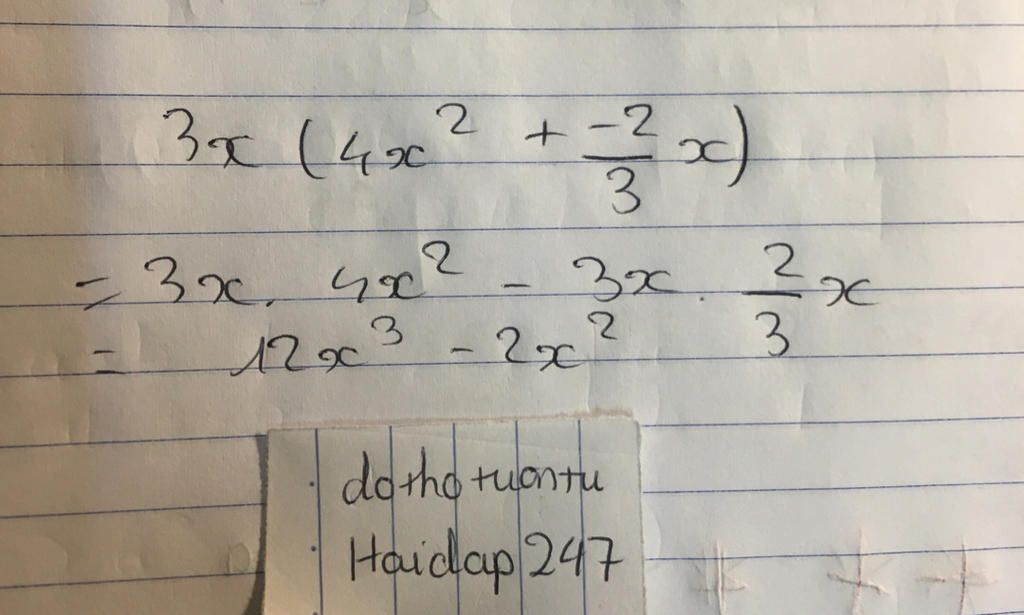 3x (4x² + -2/3 x)
= 3x. 4x² - 3x. 2/3 x
= 12x³ - 2x²
dothotuontu
Hoidap 247